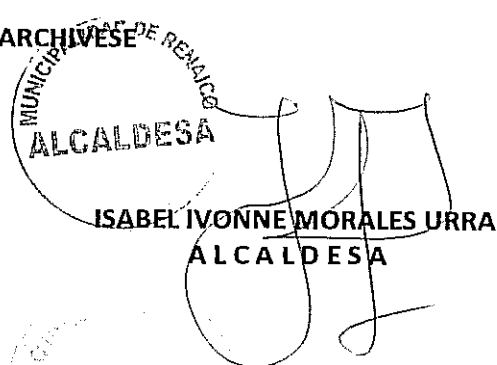 ARCHIVESE
MUNICIPALIDAD DE RENAICO
ALCALDESA
ISABEL IVONNE MORALES URRA
ALCALDESA